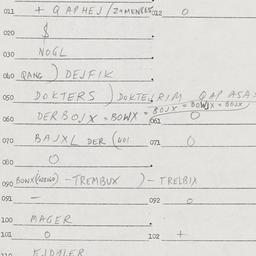 011 + QAPHEJ / ZAMENRES 012 0
020 $
030 NOGL
040 QANG ) DEJFIK
050 DOKTERS ) DOKTERIM QAP ASA
BOJX = BOWJX = BOJX
060 DERBOJX = BOWX = 061 0
070 BAJXL DER ( 071 0
080 0
090 BOWX ( ) - TREMBUX ) - TRELBIX
091 - 092 0
100 MAGER
101 0 102 +
110 EJDYLER